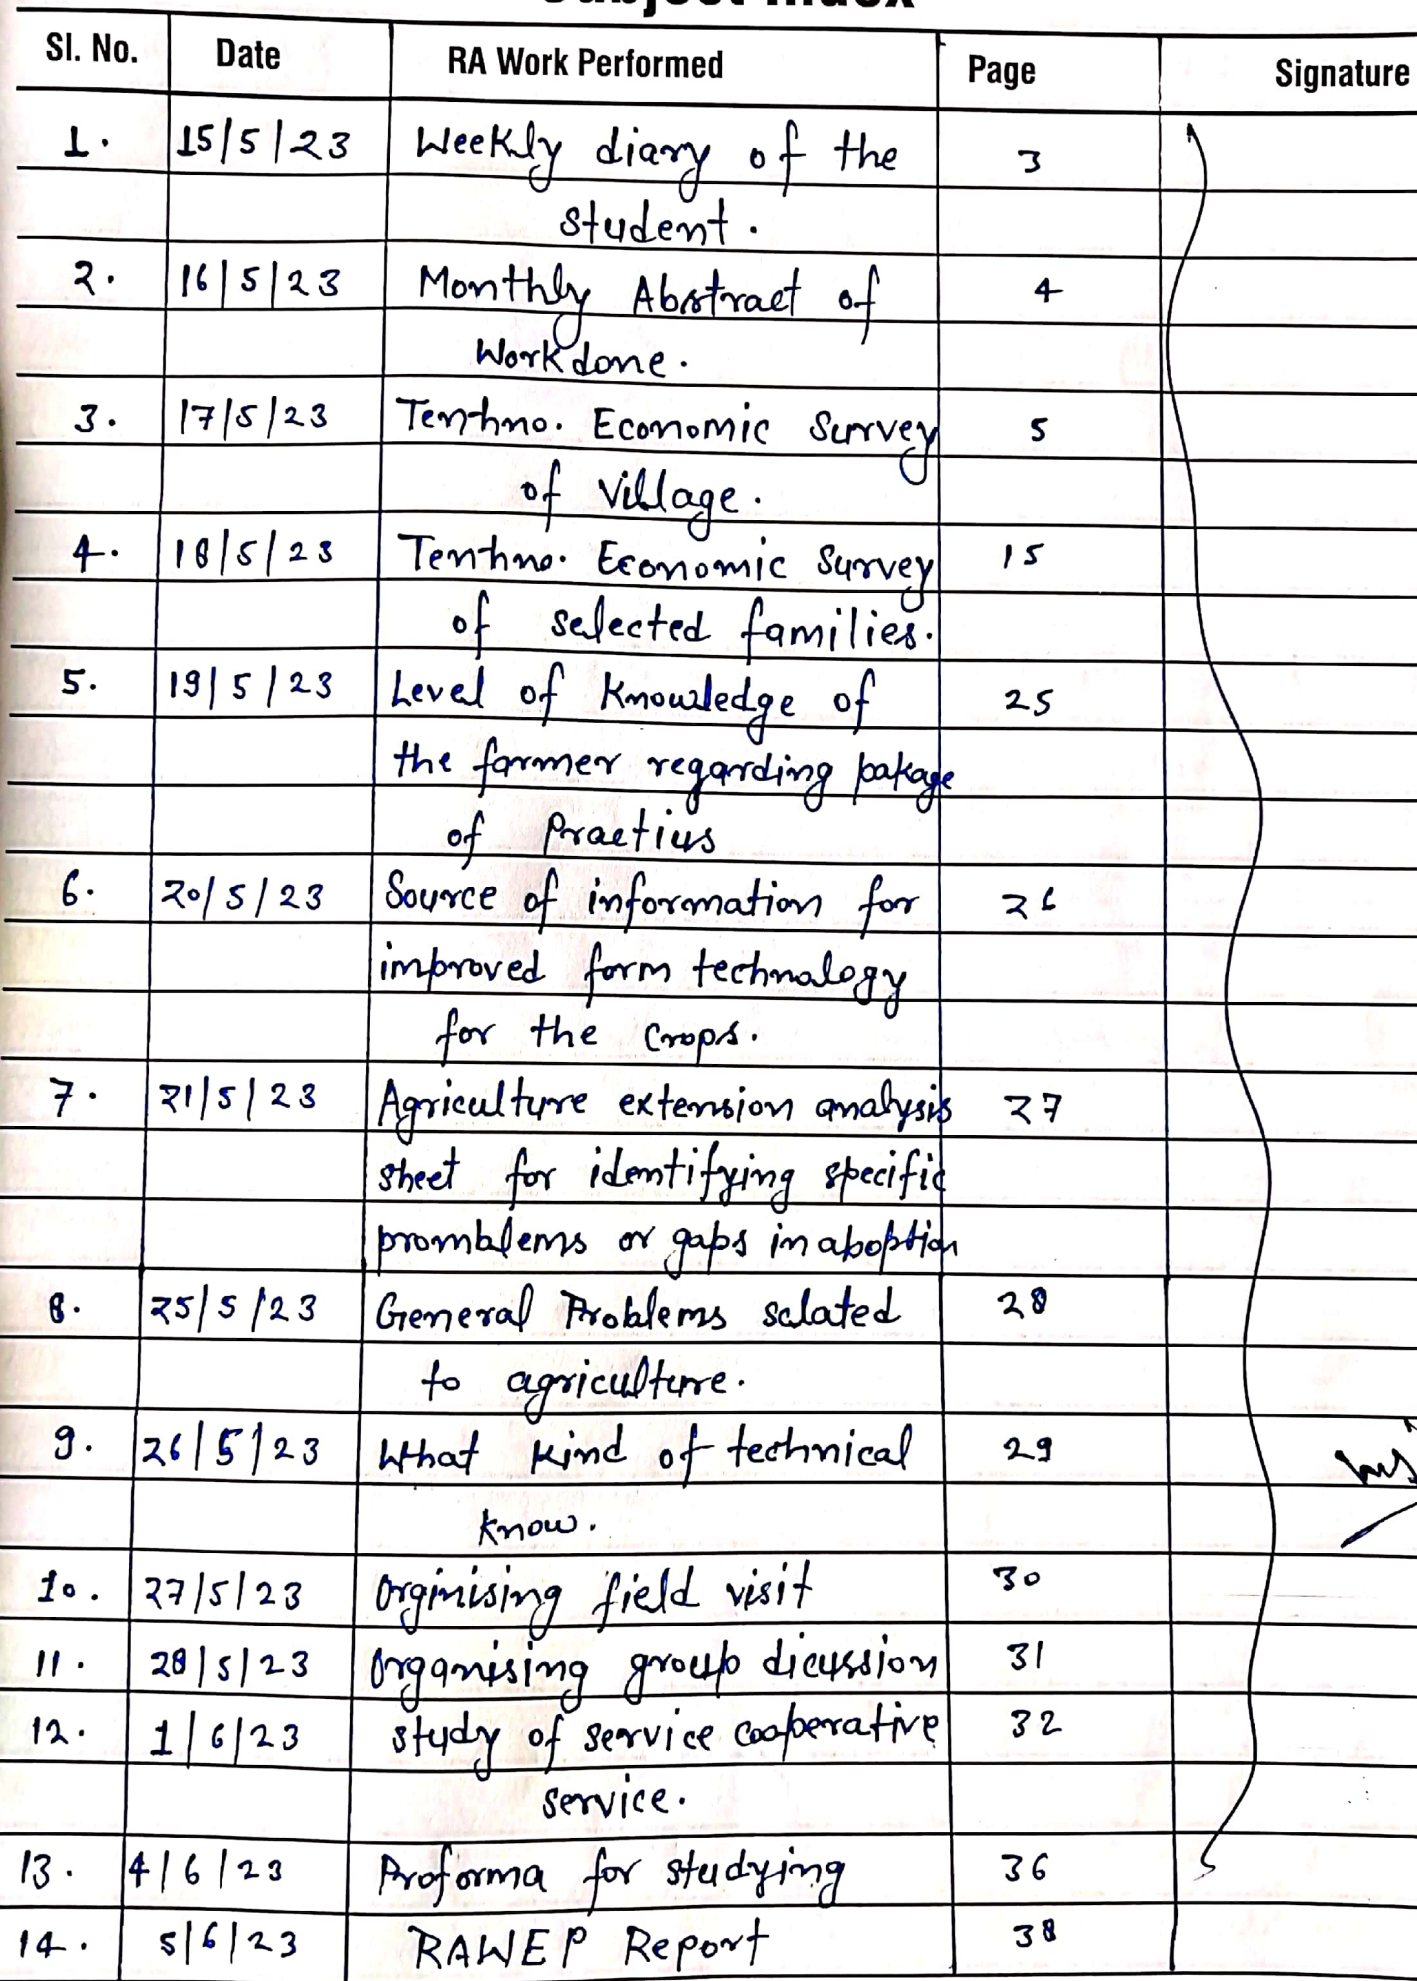 Subject Index
Sl. No. Date RA Work Performed Page Signature
1. 15/5/23 Weekly diary of the 3
student.
2. 16/5/23 Monthly Abstract of 4
Work done.
3. 17/5/23 Tenhno. Economic Survey 5
of village.
4. 18/5/23 Tenhno. Economic Survey 15
of selected families.
5. 19/5/23 Level of Knowledge of 25
the farmer regarding pakage
of Practius
6. 20/5/23 Source of information for 26
improved form technalogy
for the crops.
7. 21/5/23 Agriculture extension analysis 27
sheet for identifying specific
promblems or gaps in aboption
8. 25/5/23 General Problems salated 28
to agriculture.
9. 26/5/23 What kind of technical 29
know.
10. 27/5/23 Orginising field visit 30
11. 28/5/23 Organising group dicussion 31
12. 1/6/23 study of service cooperative 32
service.
13. 4/6/23 Proforma for studying 36
14. 5/6/23 RAWEP Report 38